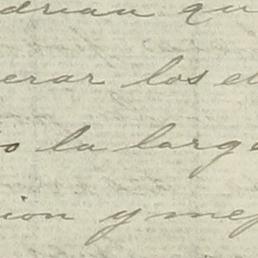 drian qu
erar los el
o la larg
ion y mej